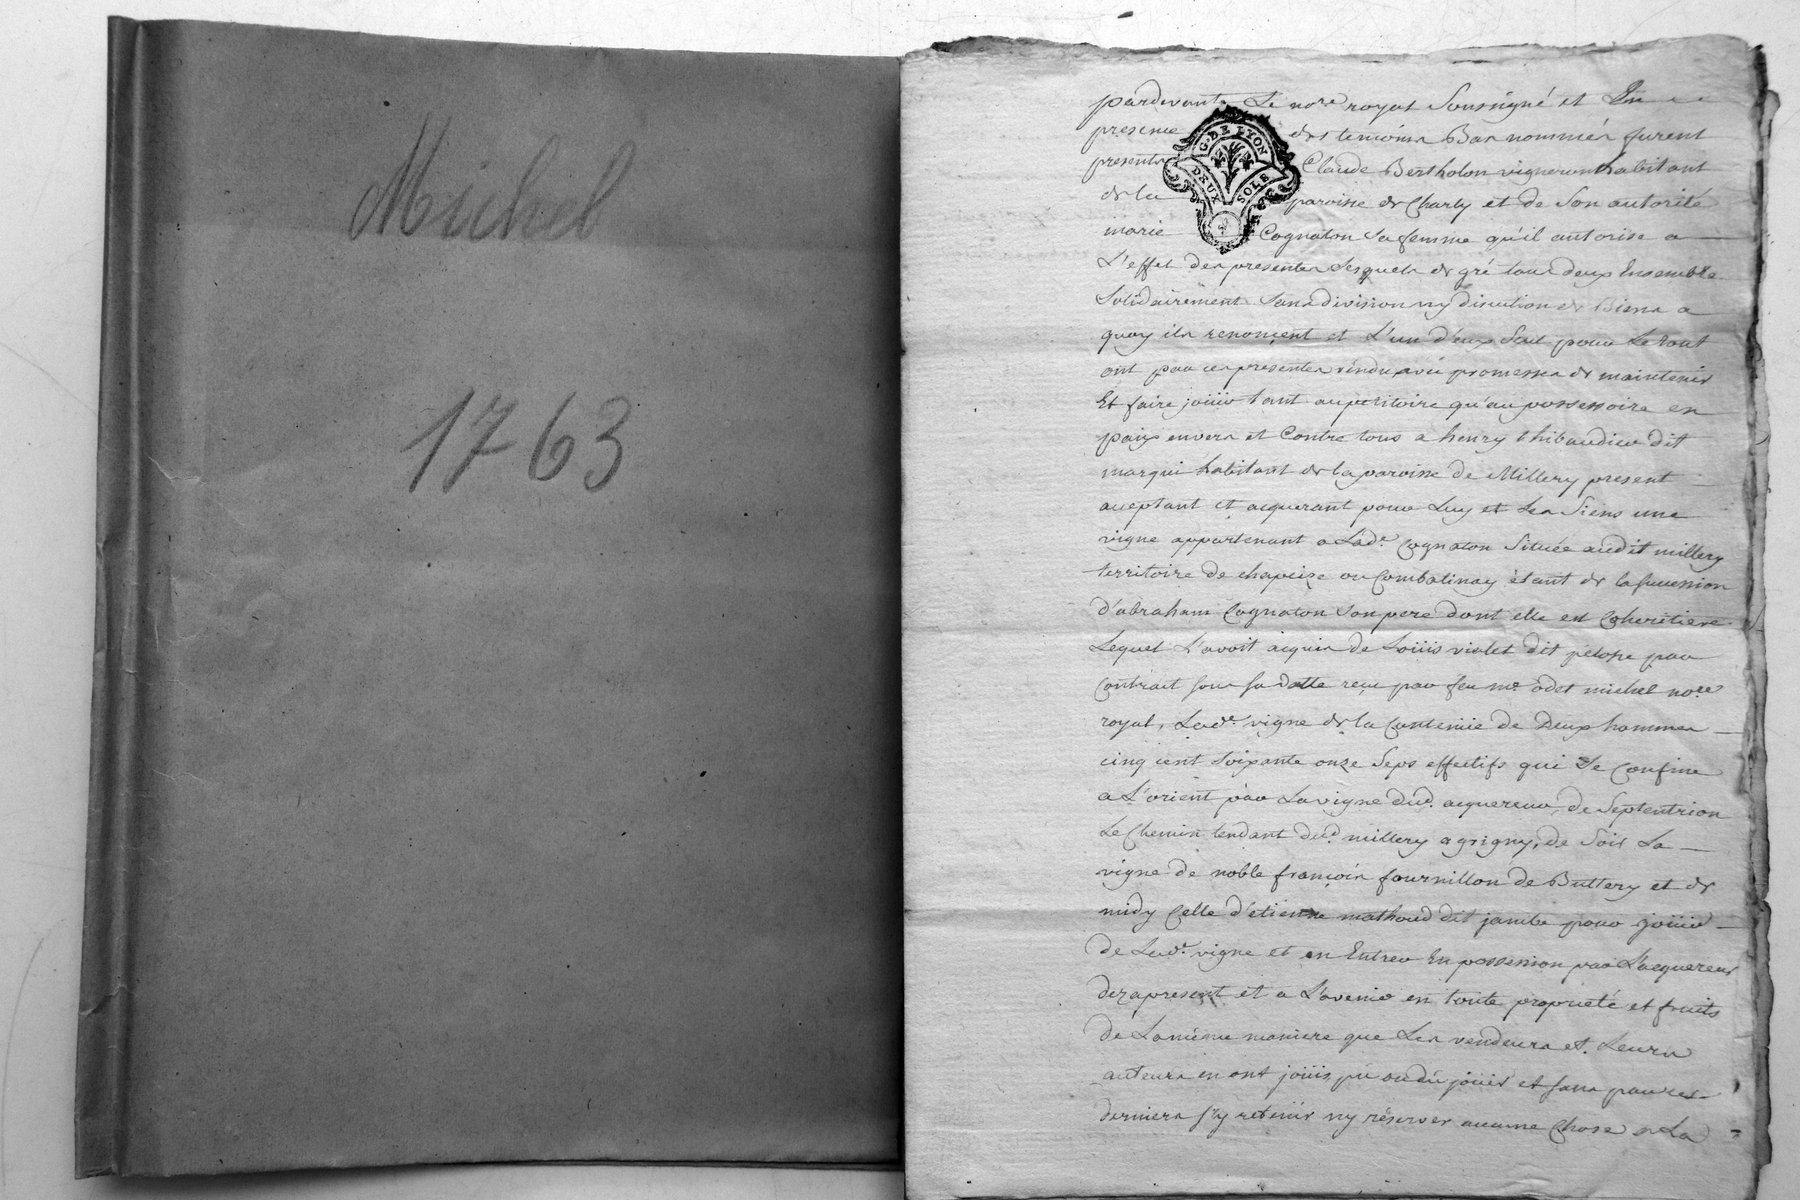 Michel
1763
G. DE LYON
DEUX SOLS
pardevant Le no.re royal Soussigné et En
presence des temoins Bas nommés furent
presents Claude Bertholon vigneron habitant
de la paroisse de Charly et de Son autorité
marie Cognaton Sa femme qu'il autorise a
L'effet des presentes Lesquels de gré tous deux Ensemble
Solidairement Sans division ny discution de Biens a
quoy ils renonçent et L'un d'eux Seul pour Le tout
ont par ces presentes vendu avec promesses de maintenir
Et faire joüir tant au petitoire qu'au possessoire en
paix envers et Contre tous a henry thibaudier dit
marqui habitant de la paroisse de Millery present
aceptant et acquerant pour Luy et Les Siens une
vigne appartenant a Lad.e Cognaton Située audit millery
territoire de chapeize ou Combalinay étant de la succession
d'abraham Cognaton Son pere dont elle est Coheritiere
Lequel L'avoit aiquis de Loüis violet dit pelope par
Contrait sous sa datte reçu par feu m.e odet michel no.re
royal, Lad.e vigne de la Contenüe de Deux hommes
cinq cent Soixante onze Seps effectifs qui Se Confine
a L'orient par La vigne dud. acquereur, de Septentrion
Le Chemin tendant dud. millery a grigny, de Soir La
vigne de noble françois fournillon de Buttery et de
midy Celle d'etienne mathoud dit jambe pour joüir
de Lad.e vigne et en Entrer En possession par L'acquereur
dez a present et a L'avenir en toute proprieté et fruits
de La même maniere que Les vendeurs et Leurs
auteurs en ont joüis, pû ou dû joüir et sans par ces
derniers s'y retenir ny réserver aucune Chose a La